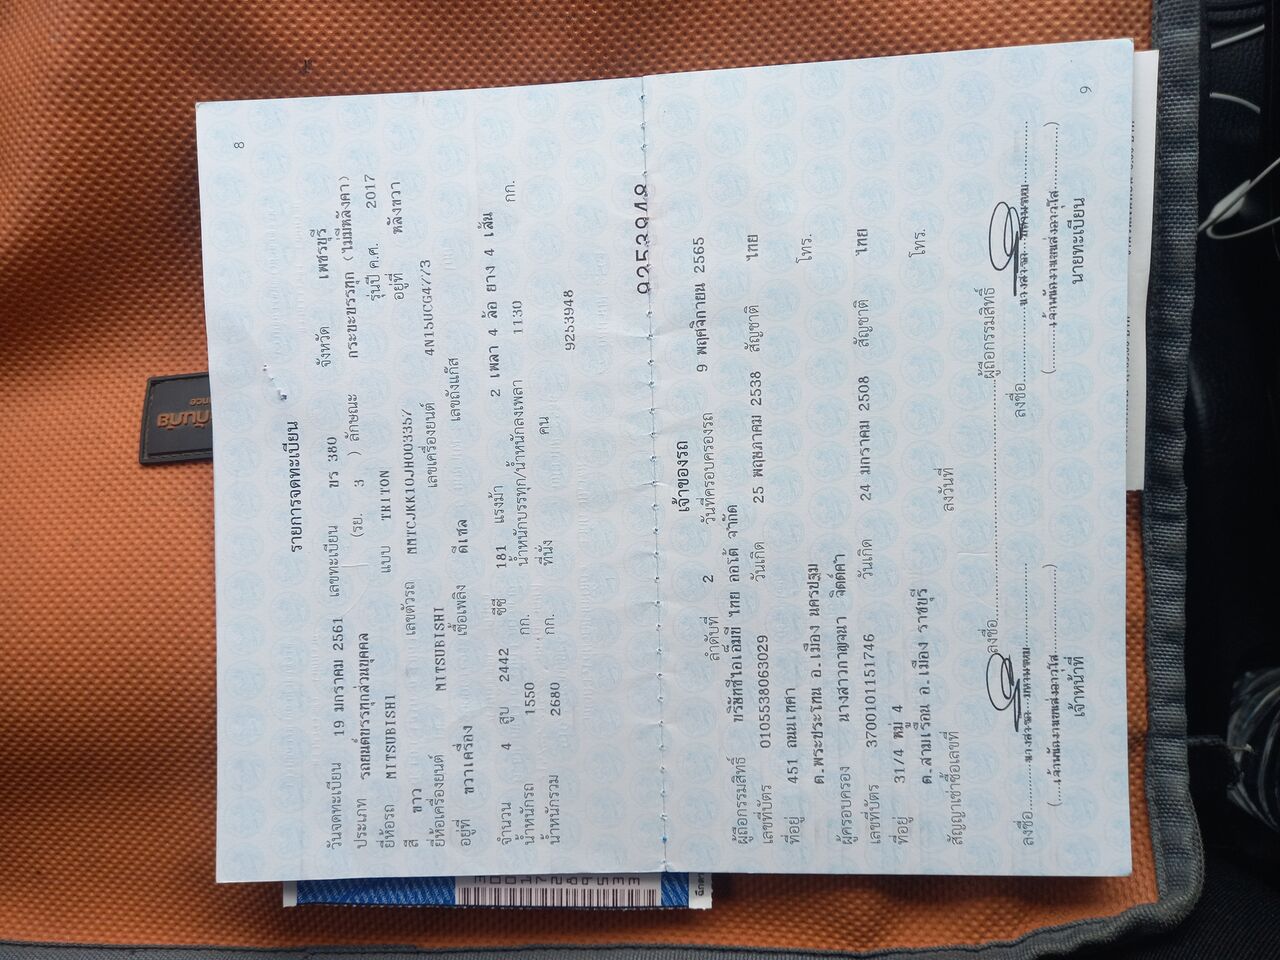 8
รายการจดทะเบียน
วันจดทะเบียน 19 มกราคม 2561 เลขทะเบียน ขร 380 จังหวัด เพชรบุรี
ประเภท รถยนต์บรรทุกส่วนบุคคล (รย. 3 ) ลักษณะ กระบะบรรทุก (ไม่มีหลังคา)
ยี่ห้อรถ MITSUBISHI แบบ TRITON รุ่นปี ค.ศ. 2017
สี ขาว เลขตัวรถ MMTCJKK10JH003357 อยู่ที่ หลังขวา
ยี่ห้อเครื่องยนต์ MITSUBISHI เลขเครื่องยนต์ 4N15UCG4773
อยู่ที่ ขวาเครื่อง เชื้อเพลิง ดีเซล เลขถังแก๊ส
จำนวน 4 สูบ 2442 ซีซี 181 แรงม้า 2 เพลา 4 ล้อ ยาง 4 เส้น
น้ำหนักรถ 1550 กก. น้ำหนักบรรทุก/น้ำหนักลงเพลา 1130 กก.
น้ำหนักรวม 2680 กก. ที่นั่ง คน
9253948
9253948
เจ้าของรถ
ลำดับที่ 2 วันที่ครอบครองรถ 9 พฤศจิกายน 2565
ผู้ถือกรรมสิทธิ์ บริษัทซีไอเอ็มบี ไทย ออโต้ จำกัด
เลขที่บัตร 0105538063029 วันเกิด 25 พฤษภาคม 2538 สัญชาติ ไทย
ที่อยู่ 451 ถนนเทศา
ต.พระประโทน อ.เมือง นครปฐม โทร.
ผู้ครอบครอง นางสาวกาญจนา จิตต์คำ
เลขที่บัตร 3700101151746 วันเกิด 24 มกราคม 2508 สัญชาติ ไทย
ที่อยู่ 31/4 หมู่ 4
ต.สามเรือน อ.เมือง ราชบุรี โทร.
สัญญาเช่าซื้อเลขที่ ลงวันที่
ลงชื่อ ผู้ถือกรรมสิทธิ์
ลงชื่อ ลงชื่อ
(เจ้าพนักงานขนส่งอาวุโส) (เจ้าพนักงานขนส่งอาวุโส)
เจ้าหน้าที่ นายทะเบียน
9